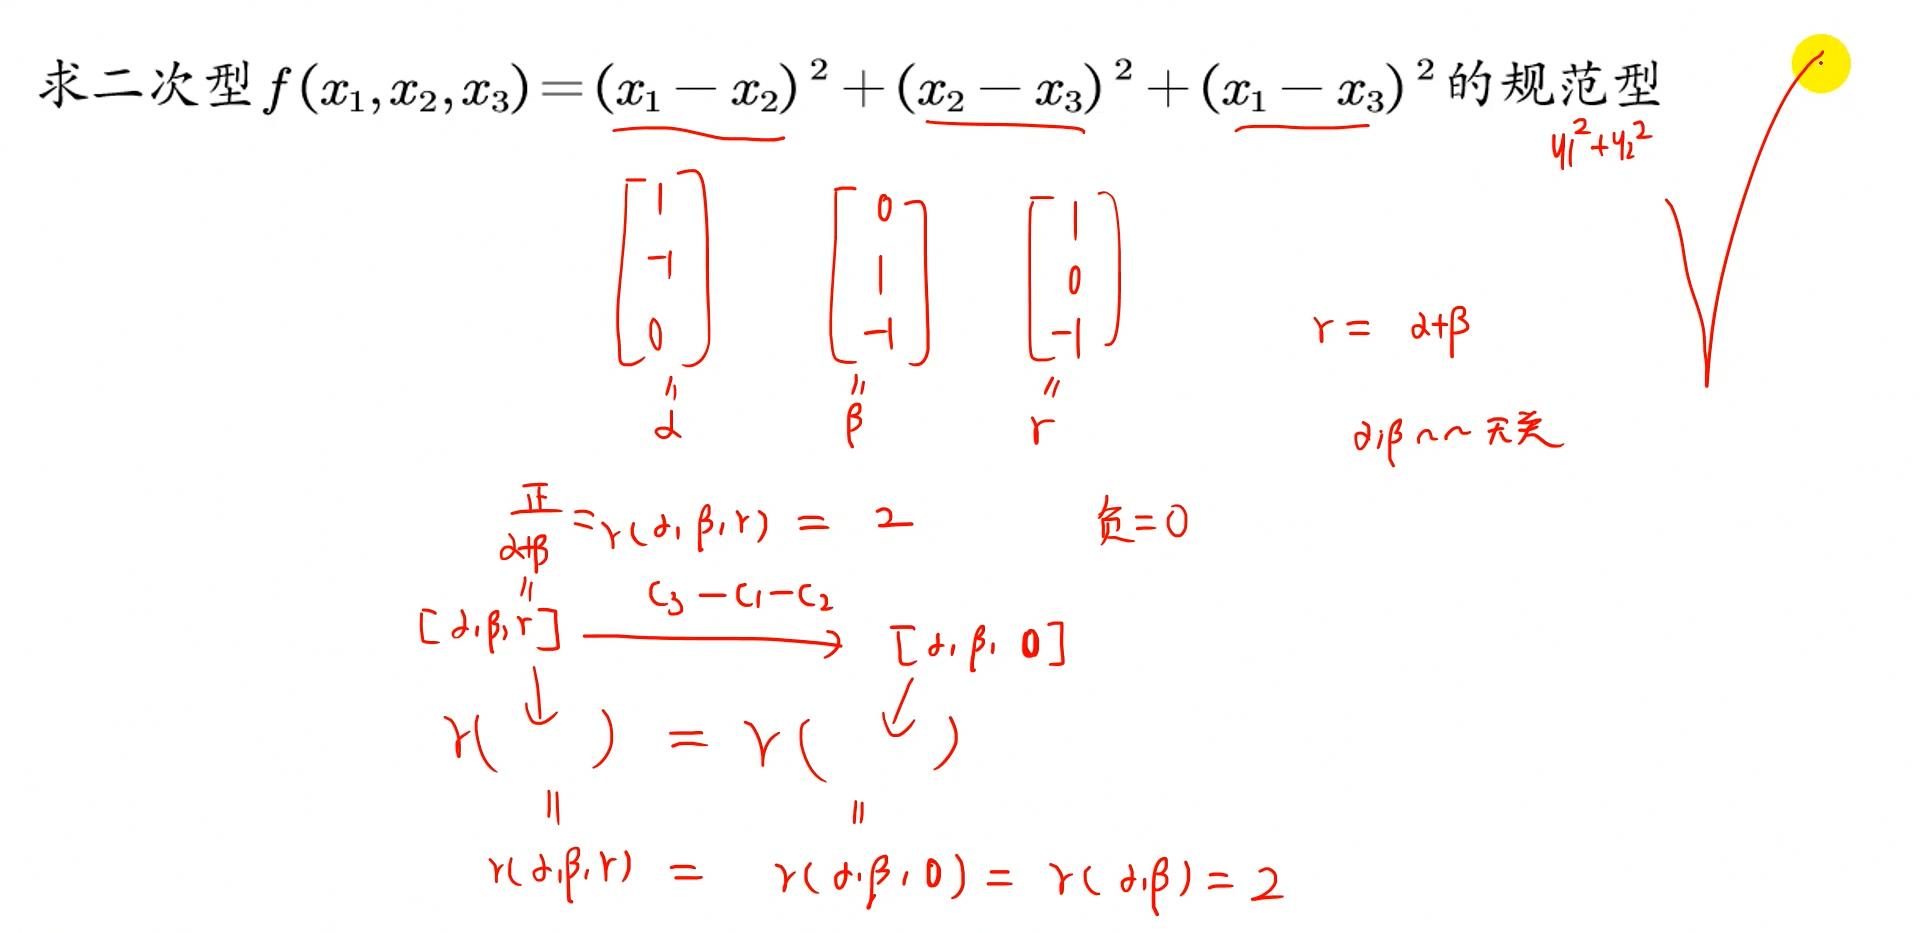 求二次型 f(x₁,x₂,x₃)=(x₁−x₂)²+(x₂−x₃)²+(x₁−x₃)² 的规范型
y₁²+y₂²
[1 −1 0] [0 1 −1] [1 0 −1]
= = =
α β r
r = α+β
α,β ~~ 无关
正 = r(α,β,r) = 2 负=0
α+β
=
[α,β,r] C₃−C₁−C₂ → [α,β,0]
↓ ↓
r( ) = r( )
= =
r(α,β,r) = r(α,β,0) = r(α,β) = 2